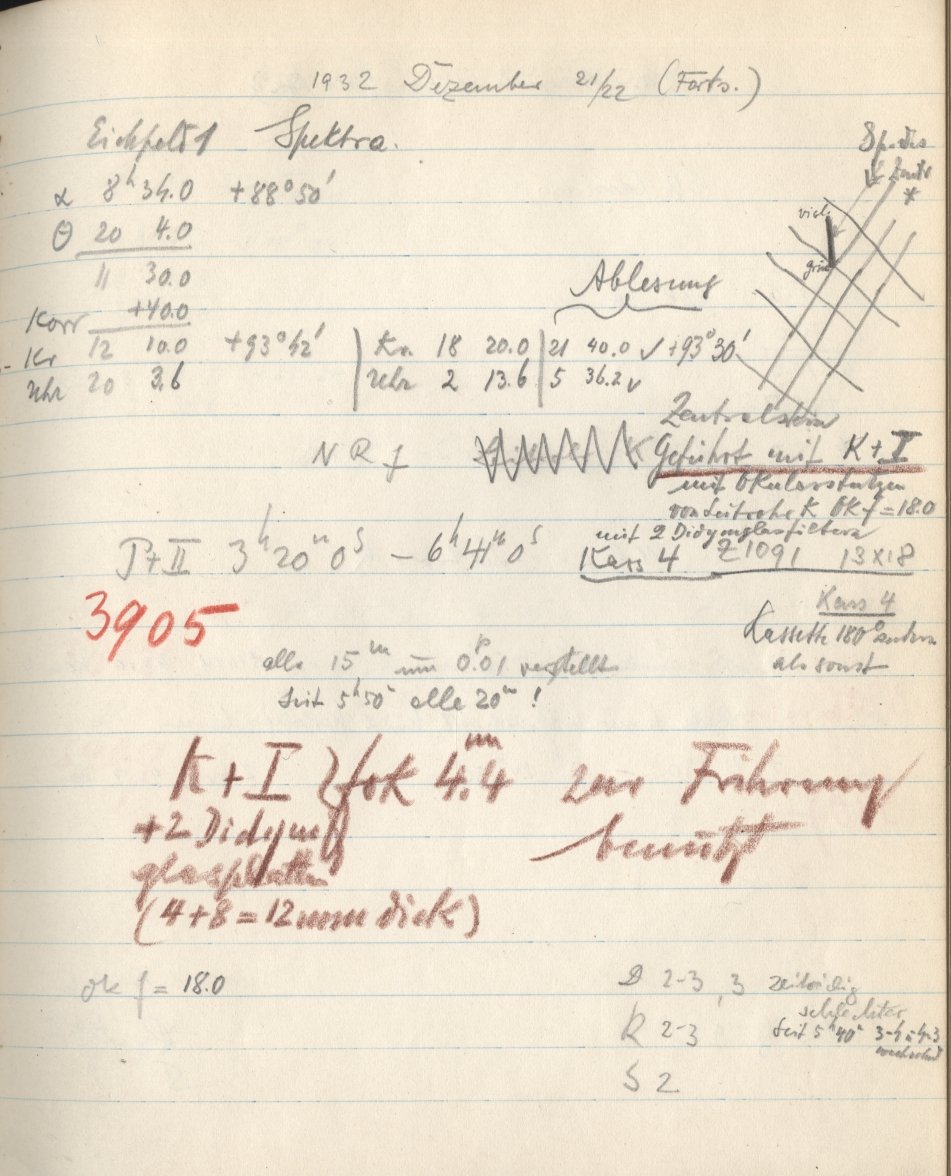 1932 Dezember 21/22 (Forts.)
Eichfeld 1 Spektra.
Sp. des
Zentr
*
α 8ʰ 34.0 +88° 50'
viol.
Θ 20 4.0
grün
11 30.0
Ablesung
Korr +40.0
Kr 12 10.0 +93° 42' Kr. 18 20.0 21 40.0 ✓ +93° 30'
Uhr 20 3.6 Uhr 2 13.6 5 36.2 ✓
Zentralstern
NRf Geführt mit K+I
mit Okularstutzen
von Leitrohr K Ok f = 18.0
mit 2 Didymglasfiltern
P+II 3ʰ 20ᵐ 0ˢ – 6ʰ 41ᵐ 0ˢ Kass 4 Z1091 13x18
3905
Kass 4
Kassette 180° anders
als sonst
alle 15ᵐ um 0.ᵖ01 verstellt
Seit 5ʰ50ᵐ alle 20ᵐ !
K+I fok 4.4ᵐᵐ zur Führung
benützt
+2 Didym
glasplatten
(4+8=12mm dick)
ok f = 18.0
D 2-3, 3 zeitweilig
schlechter
R 2-3 Seit 5ʰ40ᵐ 3-4 4-3
wechselnd
S 2